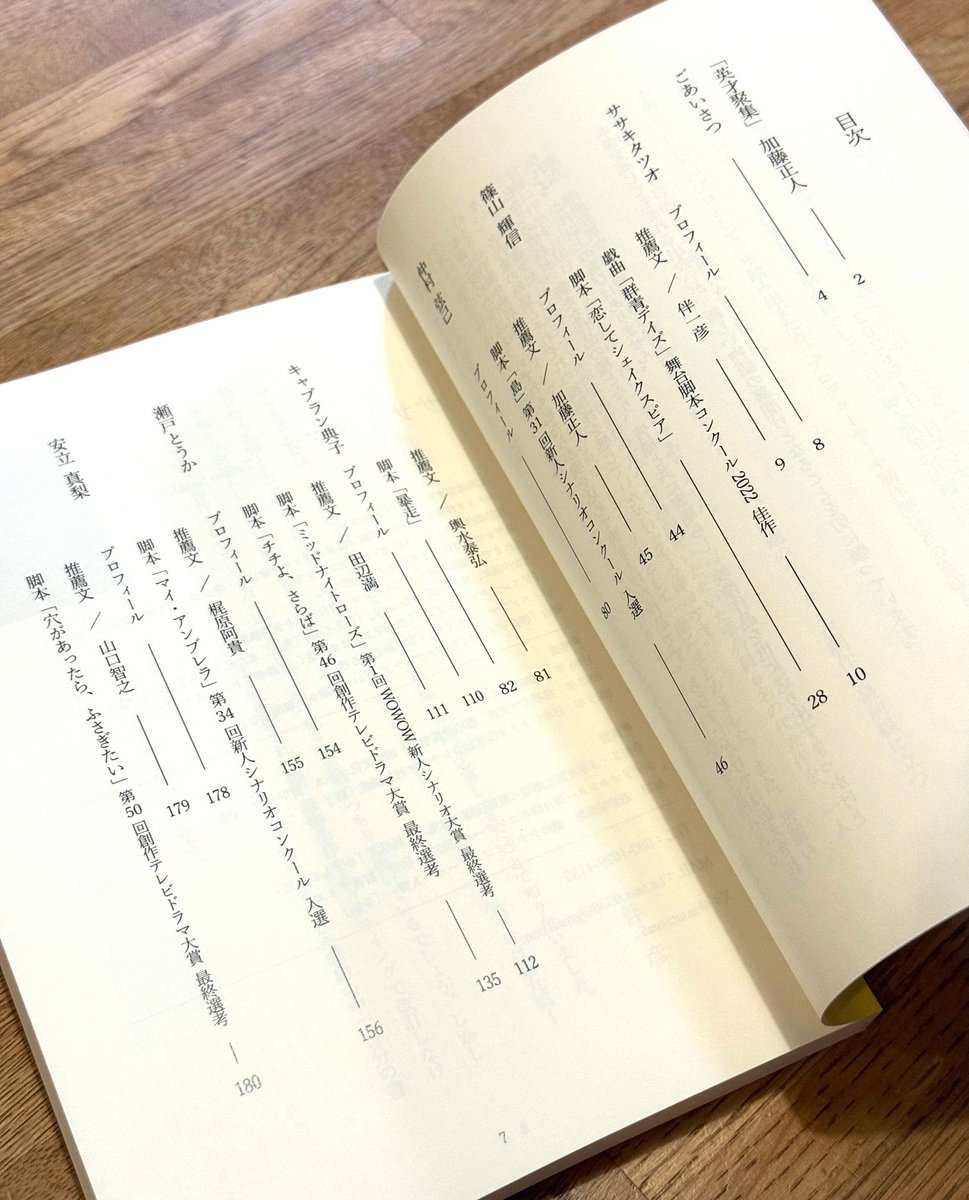 目次
「英才聚集」 加藤正人 ―― 2
ごあいさつ ―― 4
ササキタツオ
プロフィール ―― 8
推薦文 / 伴一彦 ―― 9
戯曲「群青デイズ」舞台脚本コンクール2022 佳作 ―― 10
脚本「恋してシェイクスピア」 ―― 28
篠山 輝信
プロフィール ―― 44
推薦文 / 加藤正人 ―― 45
脚本「島」第31回新人シナリオコンクール 入選 ―― 46
プロフィール ―― 80
推薦文 / 輿水泰弘 ―― 81
脚本「暴走」 ―― 82
キャプラン典子
プロフィール ―― 110
推薦文 / 田辺満 ―― 111
脚本「ミッドナイトローズ」第1回WOWOW新人シナリオ大賞 最終選考 ―― 112
脚本「チチよ、さらば」第46回創作テレビドラマ大賞 最終選考 ―― 135
瀬戸とうか
プロフィール ―― 154
推薦文 / 梶原阿貴 ―― 155
脚本「マイ・アンブレラ」第34回新人シナリオコンクール 入選 ―― 156
安立 真梨
プロフィール ―― 178
推薦文 / 山口智之 ―― 179
脚本「穴があったら、ふさぎたい」第50回創作テレビドラマ大賞 最終選考 ―― 180
7